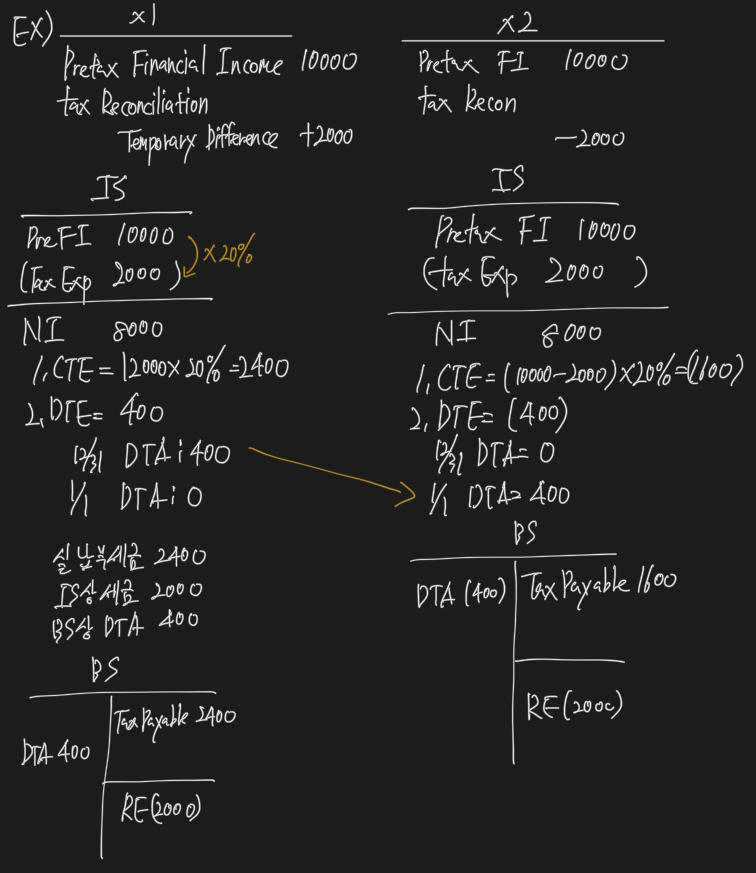 EX) x1
Pretax Financial Income 10000
tax Reconciliation
Temporary Difference +2000
IS
Pre FI 10000
(Tax Exp 2000)
×20%
NI 8000
1, CTE = 12000×20% = 2400
2, DTE = 400
12/31 DTA : 400
1/1 DTA : 0
실납부세금 2400
IS상 세금 2000
BS상 DTA 400
BS
Tax Payable 2400
DTA 400
RE (2000)
x2
Pretax FI 10000
tax Recon
-2000
IS
Pretax FI 10000
(tax Exp 2000)
NI 8000
1, CTE = (10000-2000)×20% = (1600)
2, DTE = (400)
12/31 DTA = 0
1/1 DTA = 400
BS
DTA (400) Tax Payable 1600
RE (2000)